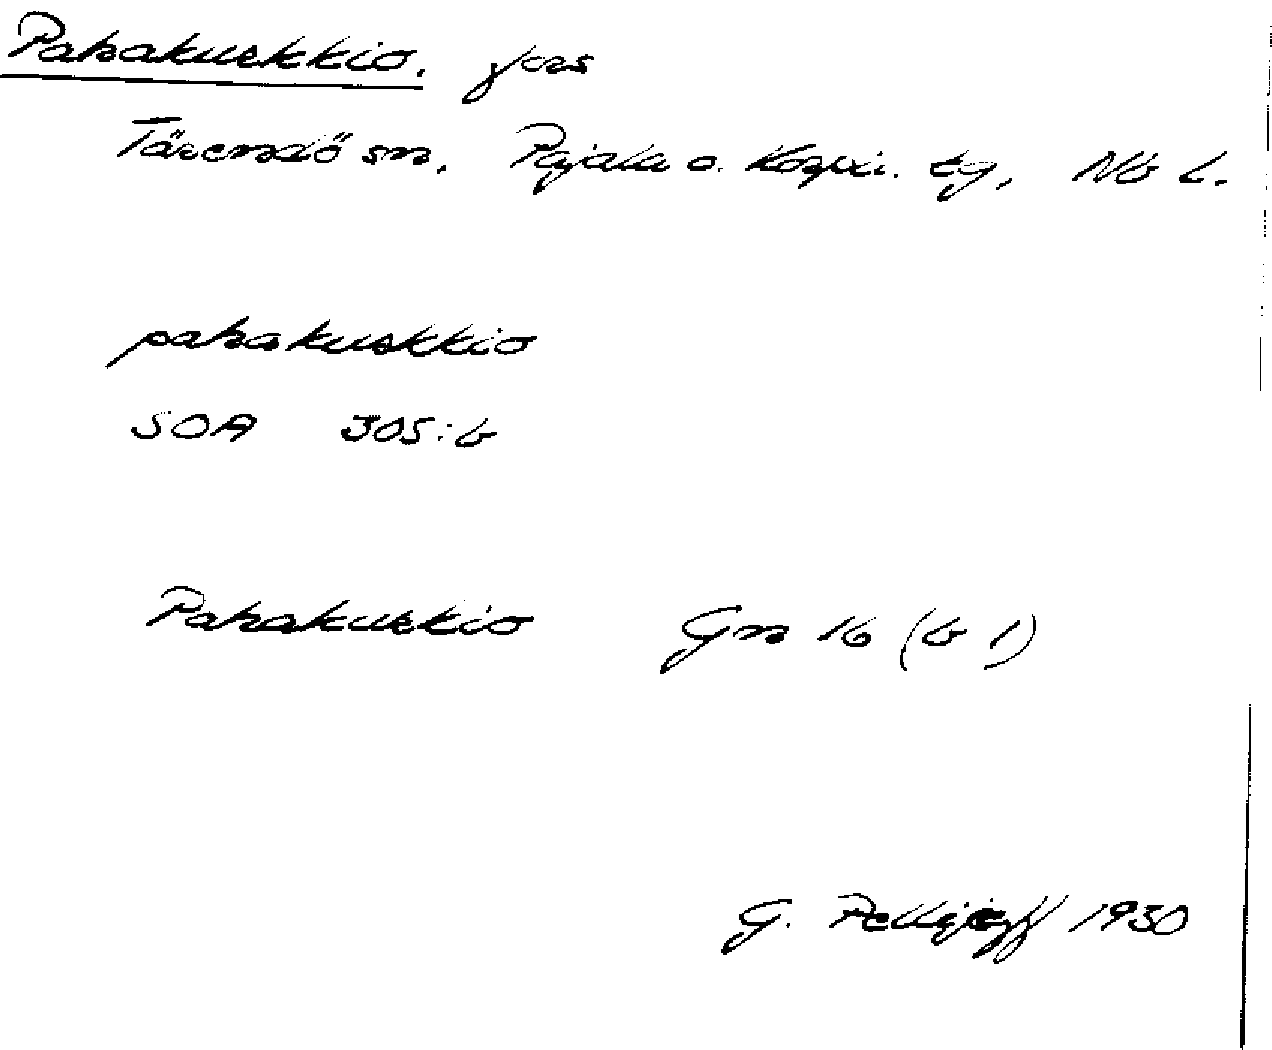 Pahakurkkio. fors
Tärendö sn. Pajala o. Korpil. tg, Nb L.
pahakurkkio
SOA 305:6
Pahakurkio Gn 16 (b 1)
G. Pellijeff 1950